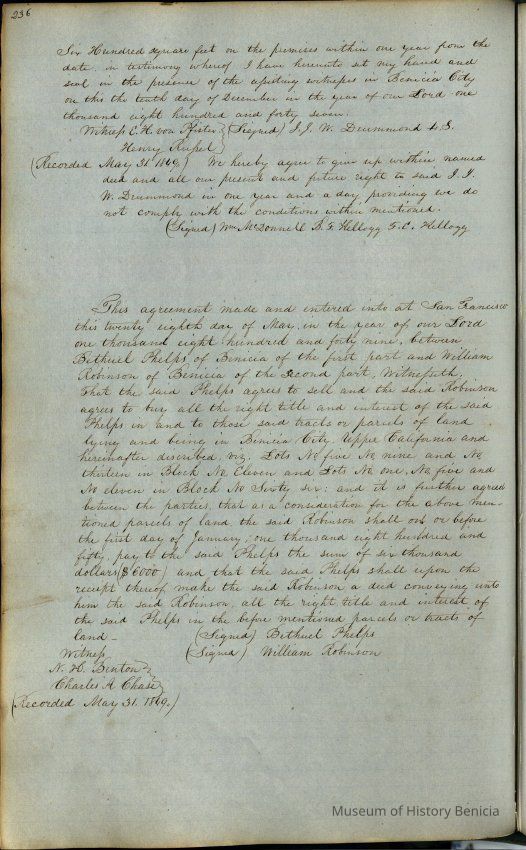 236
Six Hundred square feet on the premises within one year from the
date in testimony whereof I have hereunto set my hand and
seal in the presence of the witness in Benicia City
on this the tenth day of December in the year of our Lord one
thousand eight hundred and forty seven.
Witness E. H. von Pfister } (Signed) J. J. W. Drummond L. S.
Henry Rupel }
(Recorded May 31. 1849.) We hereby agree to give up within named
deed and all our present and future right to said J. J.
W. Drummond in one year and a day, providing we do
not comply with the conditions within mentioned.
(Signed) Wm McDonnell B. F. Kellogg F. C. Kellogg
This agreement made and entered into at San Francisco
this twenty eighth day of May, in the year of our Lord
one thousand eight hundred and forty nine, between
Bethuel Phelps of Benicia of the first part and William
Robinson of Benicia of the second part, Witnesseth,
That the said Phelps agrees to sell and the said Robinson
agrees to buy all the right title and interest of the said
Phelps in and to those said tracts or parcels of land
lying and being in Benicia City Upper California and
hereinafter described, viz; Lots No five No, nine and No,
thirteen in Block No, Eleven and Lots No, one, No, five and
No eleven in Block No Sixty six: and it is further agreed
between the parties, that as a consideration for the above men-
tioned parcels of land the said Robinson shall on or before
the first day of January, one thousand eight hundred and
fifty, pay to the said Phelps the sum of six thousand
dollars ($6000) and that the said Phelps shall upon the
receipt thereof make the said Robinson a deed conveying unto
him the said Robinson, all the right title and interest of
the said Phelps in the before mentioned parcels or tracts of
land_ (Signed) Bethuel Phelps
Witness (Signed) William Robinson
N. H. Benton }
Charles A Chase }
(Recorded May 31. 1849.)
Museum of History Benicia